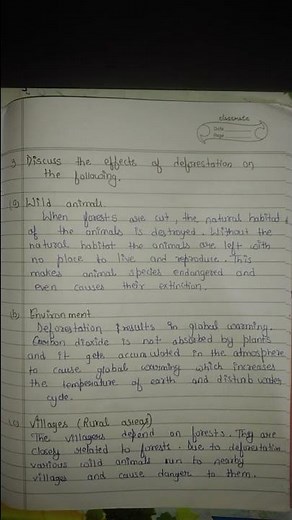 classmate
Date
Page
3 Discuss the effects of deforestation on
the following.
(a) Wild animals.
When forests are cut, the natural habitat
of the animals is destroyed. Without the
natural habitat the animals are left with
no place to live and reproduce. This
makes animal species endangered and
even causes their extinction.
(b) Environment
Deforestation results in global warming.
Carbon dioxide is not absorbed by plants
and it gets accumulated in the atmosphere
to cause global warming which increases
the temperature of earth and disturb water
cycle.
(c) Villages (Rural areas)
The villagers depend on forests. They are
closely related to forests. Due to deforestation
various wild animals run to nearby
villages and cause danger to them.